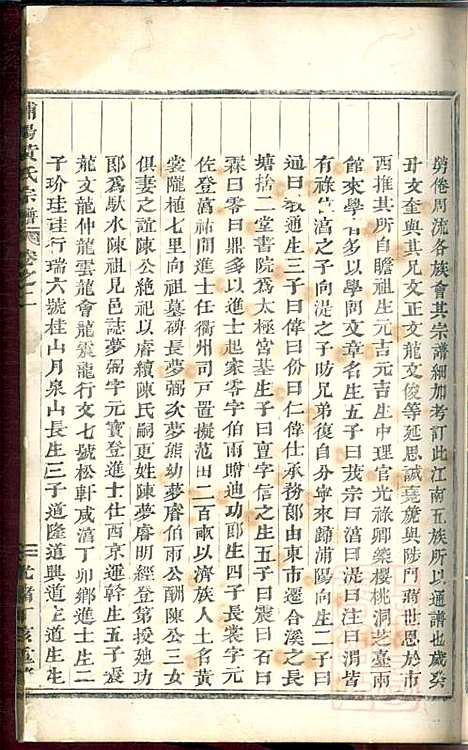 勞倦周流各族會其宗譜細加考訂此江南五族所以通譜也歲癸
丑文奎與其兄文正文龍文俊等延思誠堯篪與陟門蒴世恩於市
西推其所自瞻祖生元吉元吉生中理官光祿卿築櫻桃洞芝臺兩
館來學者多以學問文章名生五子曰茂宗曰湻曰湜曰注曰渭皆
有祿 湻之子向湜之子昉兄弟復自分寧來歸浦陽向生二子曰
迪曰 通生三子曰偉曰仍曰仁偉仕承務郎由東市遷合溪之長
塘捨二堂書院為太極宮基生子曰𡩋字信之生五子曰震曰石曰
霖曰零曰鼎多以進士起家零字伯雨贈迪功郎生四子長裳字元
佐登萬祐間進士任衢州司戶置擬范田二百畝以濟族人土名黃
棠隴植七里向祖墓碑長夢弼次夢熊幼夢麐伯雨公酬陳公三
俱妻之誼陳公絕祀以麐續陳氏嗣更姓陳夢麐明經登第授廸功
郎為馱水陳祖見邑誌夢弼字元寶登進士仕西京運幹生五子袞
龍文龍仲龍雲龍會龍袞龍行文七號松軒咸湻丁卯鄉進士生二
子玠珪珪行瑞六號桂山月泉山長生三子道隆道興道 道生生
浦陽黃氏宗譜 卷之一
光緒丁亥